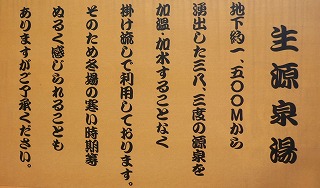 生源泉湯
地下約一、五〇〇Mから
湧出した三八、三度の源泉を
加温・加水することなく
掛け流しで利用しております。
そのため冬場の寒い時期等
ぬるく感じられることも
ありますがご了承ください。